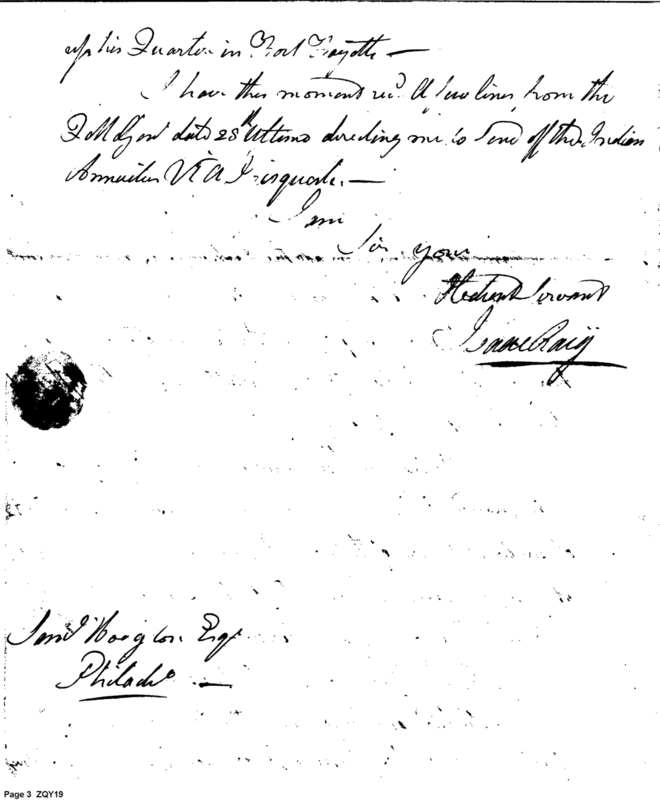 up his Quarters in Fort Fayette —
I have this moment rec.d A few lines from the
Q M Gen.l date 28th Ultimo directing me to Send off the Indian
Annuities VIA Presquile. —
I am
Sir your
Obedient Servant
Isaac Craig
Sam.l Hodgdon Esq.r
Philad.a —
Page 3 ZQY19